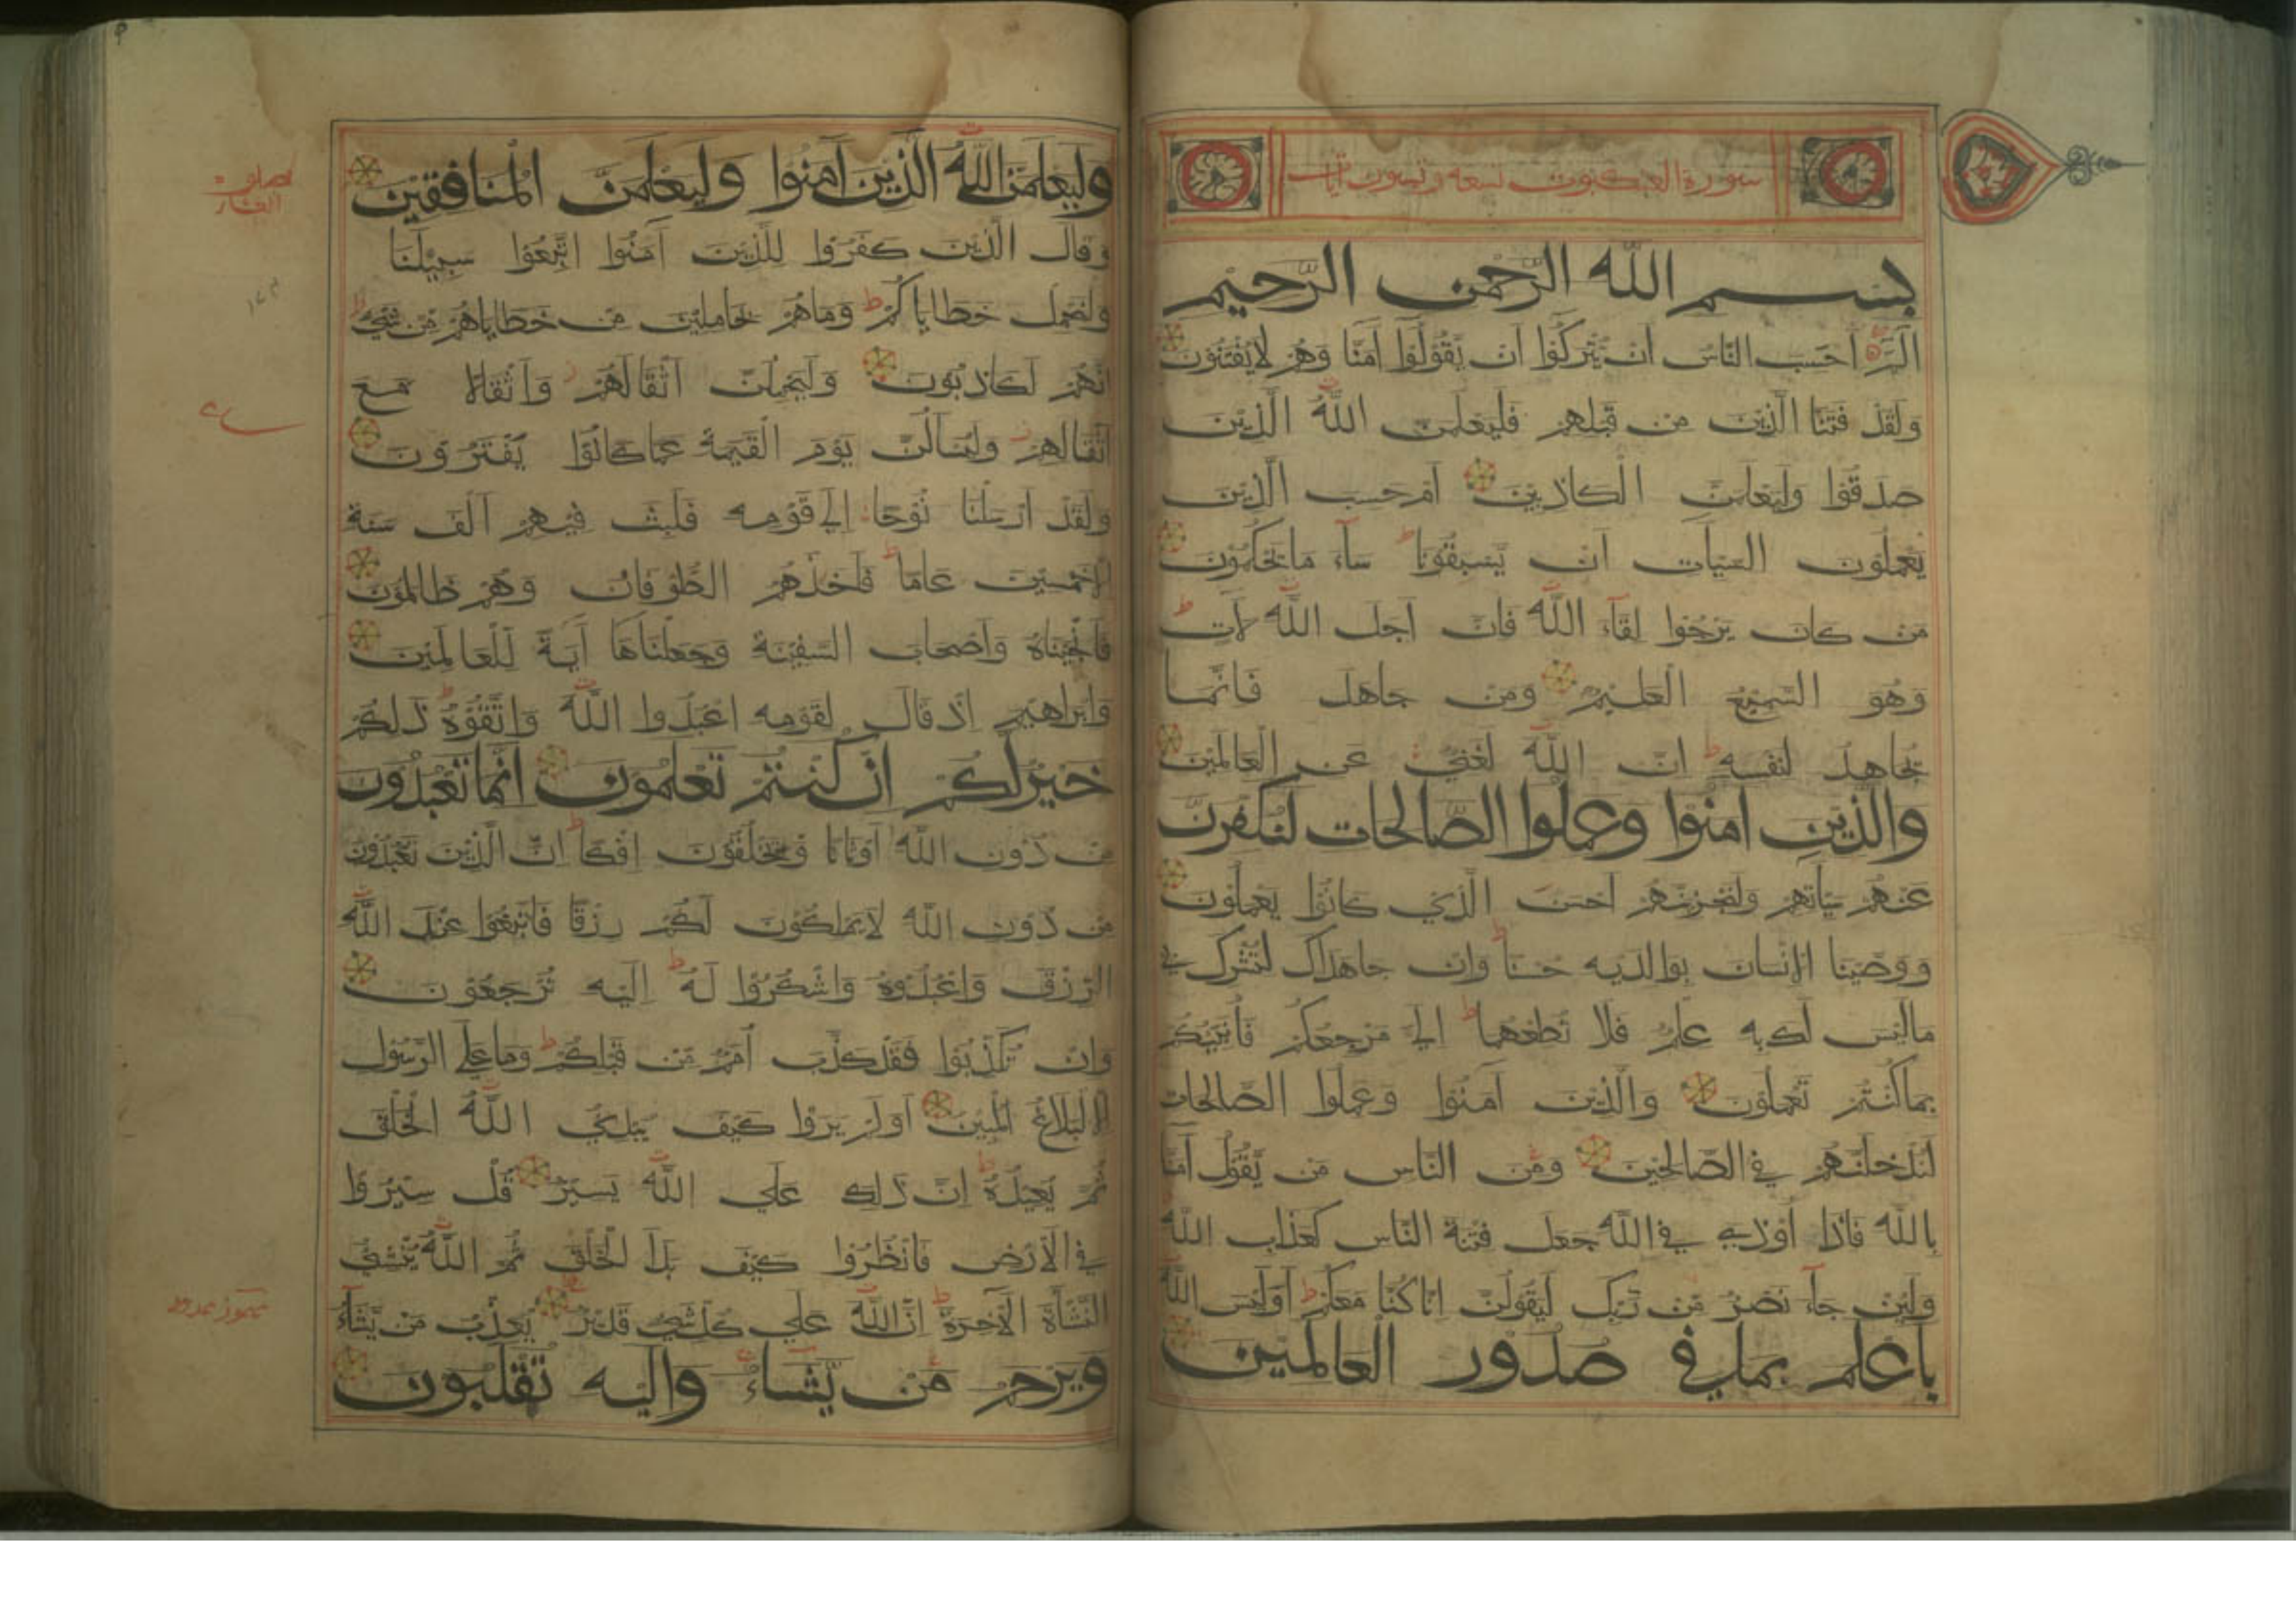 سورة العنكبوت تسعة وستون آيات
بسم الله الرحمن الرحيم
الم أحسب الناس أن يتركوا أن يقولوا آمنا وهم لا يفتنون
ولقد فتنا الذين من قبلهم فليعلمن الله الذين
صدقوا وليعلمن الكاذبين أم حسب الذين
يعملون السيات أن يسبقونا ساء ما يحكمون
من كان يرجوا لقاء الله فان أجل الله لآت
وهو السميع العليم ومن جاهد فانما
يجاهد لنفسه ان الله لغني عن العالمين
والذين امنوا وعملوا الصالحات لنكفرن
عنهم سيأتهم ولنجزينهم احسن الذي كانوا يعملون
ووصينا الإنسان بوالديه حسنا وان جاهداك لتشرك بي
ما ليس لك به علم فلا تطعهما الي مرجعكم فأنبئكم
بما كنتم تعملون والذين آمنوا وعملوا الصالحات
لندخلنهم في الصالحين ومن الناس من يقول آمنا
بالله فاذا أوذي في الله جعل فتنة الناس كعذاب الله
ولين جاء نصر من ربك ليقولن انا كنا معكم أوليس الله
بأعلم بما في صدور العالمين
وليعلمن الله الذين آمنوا وليعلمن المنافقين
وقال الذين كفروا للذين آمنوا اتبعوا سبيلنا
ولنحمل خطاياكم وما هم بحاملين من خطاياهم من شيء
انهم لكاذبون وليحملن أثقالهم وأثقالا مع
اثقالهم وليسالن يوم القيمة عما كانوا يفترون
ولقد أرسلنا نوحا إلي قومه فلبث فيهم ألف سنة
الا خمسين عاما فأخذهم الطوفان وهم ظالمون
فأنجيناه وأصحاب السفينة وجعلناها آية للعالمين
وابراهيم إذ قال لقومه اعبدوا الله واتقوه ذلكم
خير لكم ان كنتم تعلمون انما تعبدون
من دون الله أوثانا وتخلقون إفكا ان الذين تعبدون
من دون الله لا يملكون لكم رزقا فابتغوا عند الله
الرزق واعبدوه واشكروا له إليه ترجعون
وان تكذبوا فقد كذب أمم من قبلكم وما علي الرسول
الا البلاغ المبين أولم يروا كيف يبدي الله الخلق
ثم يعيده ان ذلك علي الله يسير قل سيروا
في الأرض فانظروا كيف بدأ الخلق ثم الله ينشئ
النشأة الآخرة ان الله علي كل شي قدير يعذب من يشاء
ويرحم من يشاء واليه تقلبون